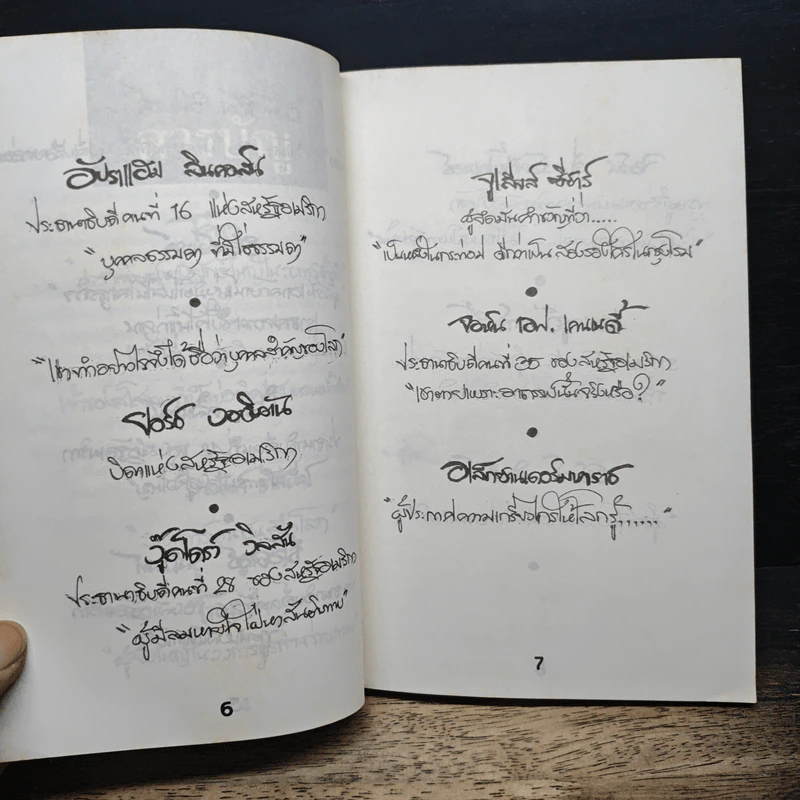 อับราแฮม ลินคอล์น
ประธานาธิบดีคนที่ 16 แห่งสหรัฐอเมริกา
"บุคคลธรรมดา ที่มิใช่ธรรมดา"
"เขาทำอย่างไรจึงได้ชื่อว่าบุคคลสำคัญของโลก"
ยอร์ช วอชิงตัน
บิดาแห่งสหรัฐอเมริกา
วู๊ดโดรว์ วิลสัน
ประธานาธิบดีคนที่ 28 ของสหรัฐอเมริกา
"ผู้มีลมหายใจใฝ่หาสันติภาพ"
6
จูเลียส ซีซาร์
ผู้ยึดมั่นคำขวัญที่ว่า.....
"เป็นหนึ่งในกระท่อม ดีกว่าเป็นสองรองใครในกรุงโรม"
จอห์น เอฟ. เคนเนดี้
ประธานาธิบดีคนที่ 35 ของสหรัฐอเมริกา
"เขาตายเพราะอาถรรพณ์นั้นจริงหรือ?"
อเล็กซานเดอร์มหาราช
"ผู้ประกาศความเกรียงไกรให้โลกรู้......"
7